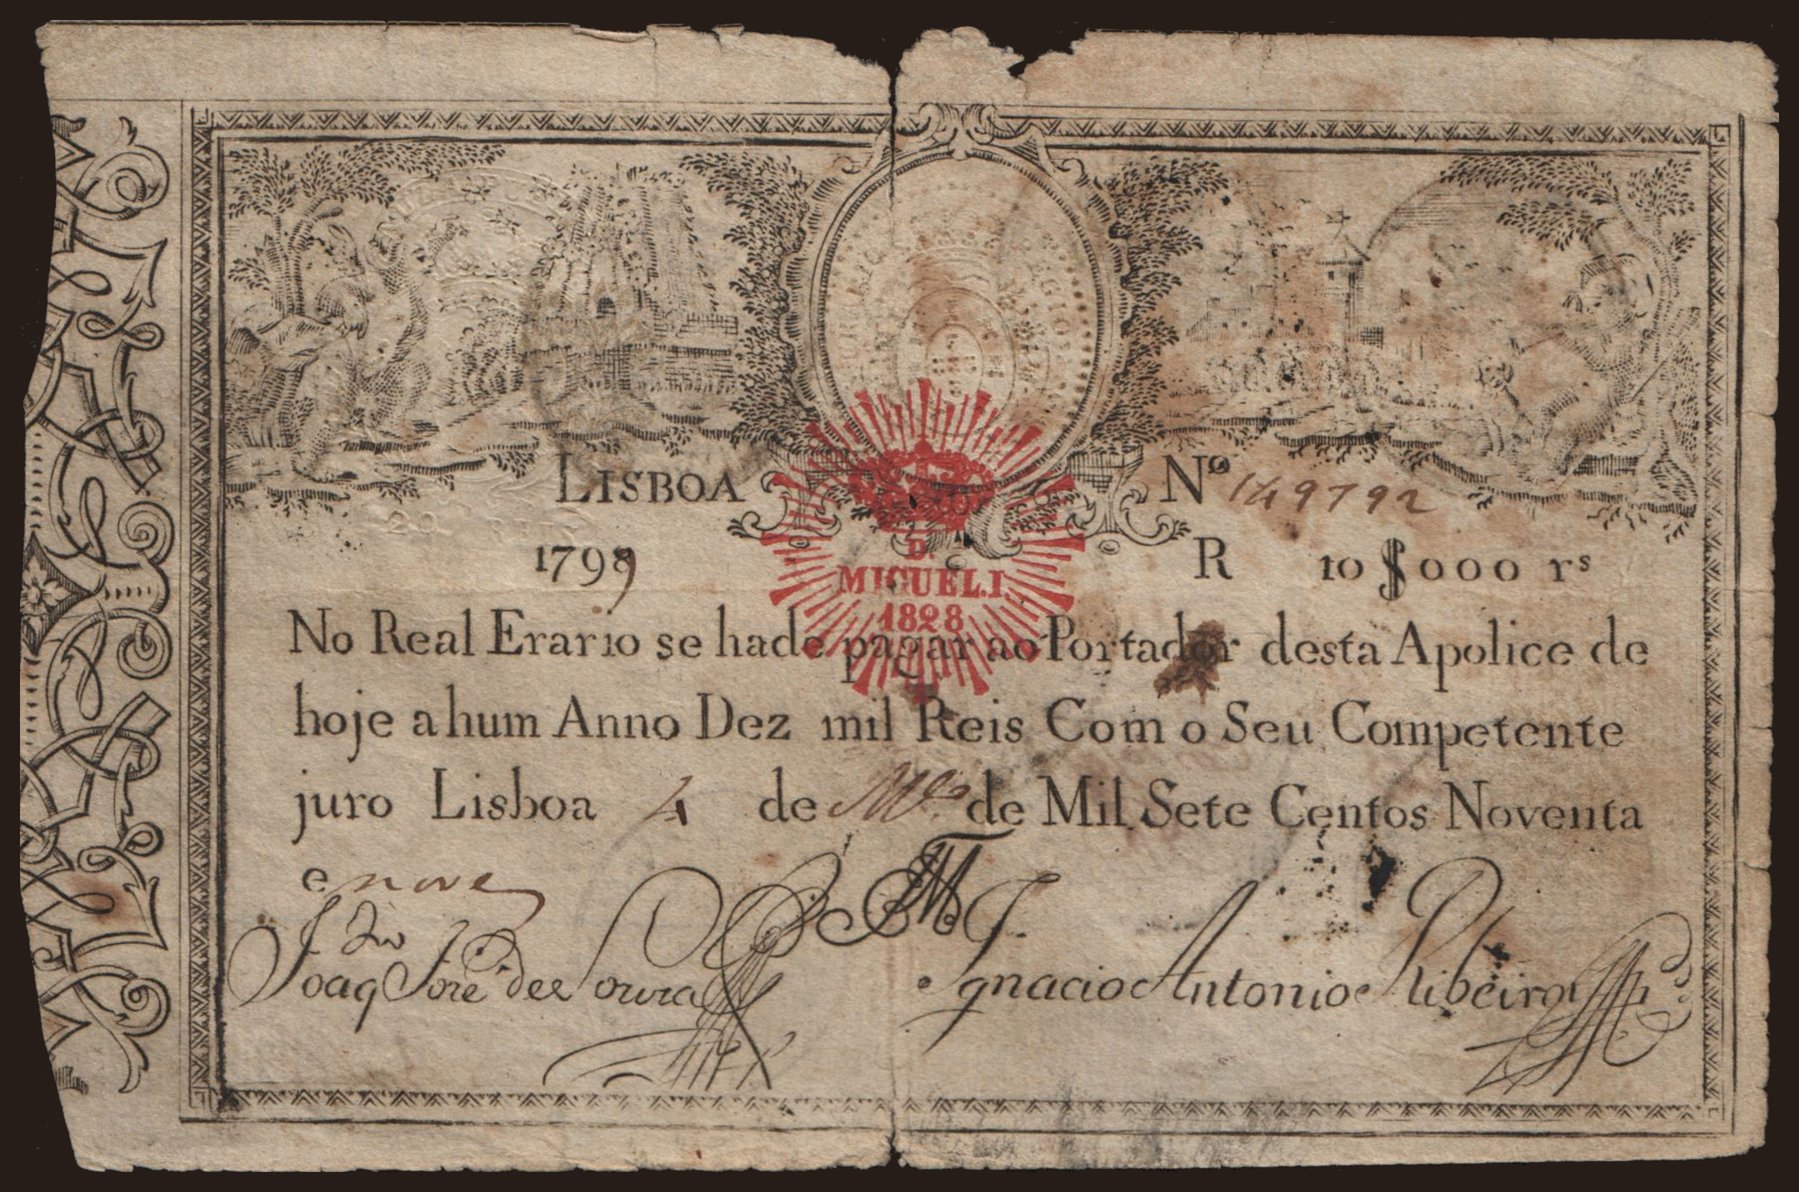 LISBOA
Nº 149792
1799
R 10$000 rs
D.
MIGUEL.I
1828
No Real Erario se hade pagar ao Portador desta Apolice de
hoje a hum Anno Dez mil Reis Com o Seu Competente
juro Lisboa 4 de M.ço de Mil Sete Centos Noventa
e nove
Joaq Joze de Souza
Ignacio Antonio Ribeiro